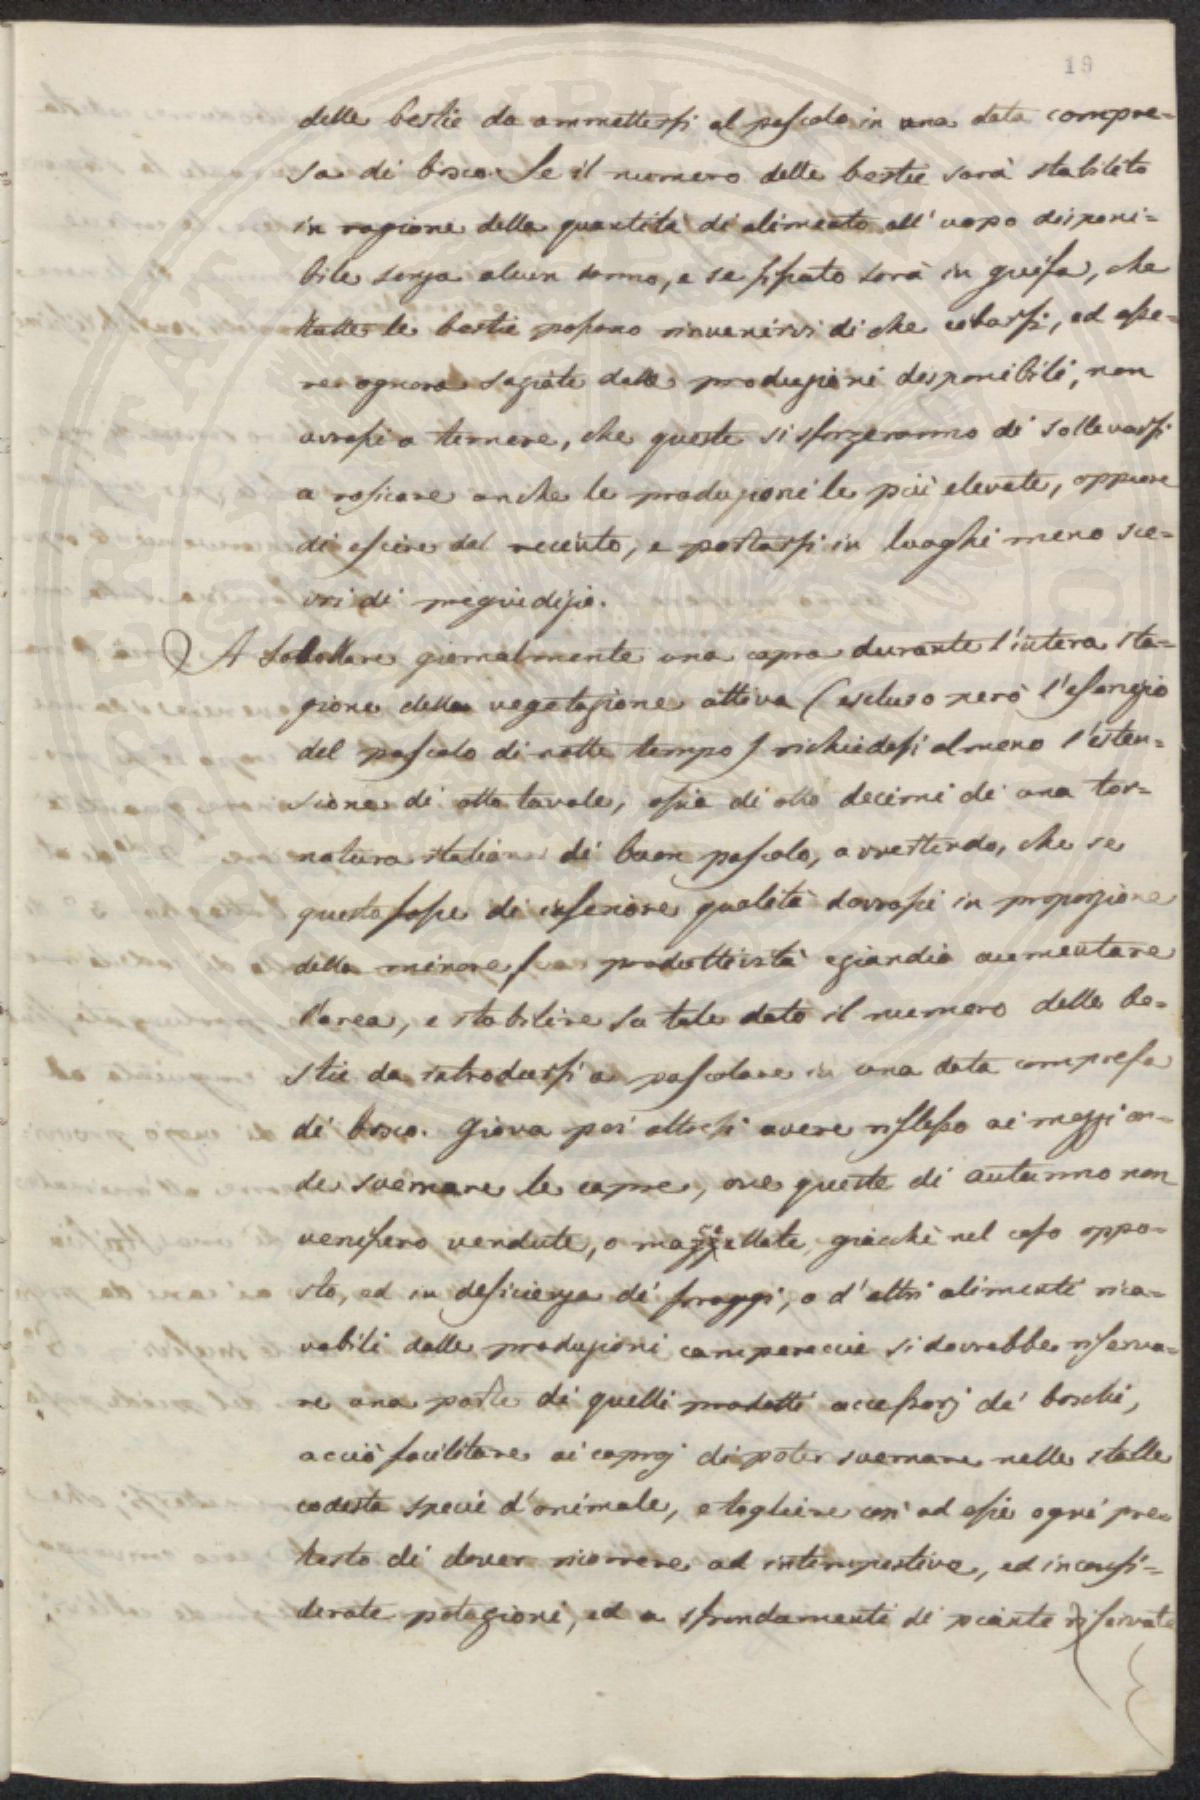 19
delle bestie da ammettersi al pascolo in una data compre=
sa di bosco. Se il numero delle bestie sarà stabilito
in ragione della quantità di alimento all' uopo disponi=
bile senza alcun danno, e se fissato sarà in guisa, che
tutte le bestie possano rinvenirvi di che cibarsi, ed esse=
re ognora saziate dalle produzioni disponibili, non
avrassi a temere, che queste si sforzeranno di sollevarsi
a rosicare anche le produzioni le più elevate, oppure
di escire dal recinto, e portarsi in luoghi meno sce=
vri di pregiudizio.
A satollare giornalmente una capra durante l'intera sta=
gione della vegetazione attiva (escluso però l'esercizio
del pascolo di notte tempo) richiedesi almeno l'esten=
sione di otto tavole, ossia di otto decimi di una tor=
natura italiana di buon pascolo, avvertendo, che se
questo fosse di inferiore qualità dovrassi in proporzione
della minore sua produttività eziandio aumentare
l'area, e stabilire su tale dato il numero delle be=
stie da introdursi a pascolare in una data compresa
di bosco. Giova poi altresì avere riflesso ai mezzi on=
de svernare le capre, ove queste di autunno non
venissero vendute, o macellate, giacchè nel caso oppo=
sto, ed in deficienza di foraggi, o d'altri alimenti rica=
vabili dalle produzioni camperecie si dovrebbe riserva=
re una parte di quelli prodotti accessorj de' boschi,
acciò facilitare ai caprj di poter svernare nelle stalle
codesta specie d'animale, e togliere così ad essi ogni pre=
testo di dover ricorrere ad intempestive, ed inconsi=
derate potagioni, ed a sfrondamenti di piante riservate